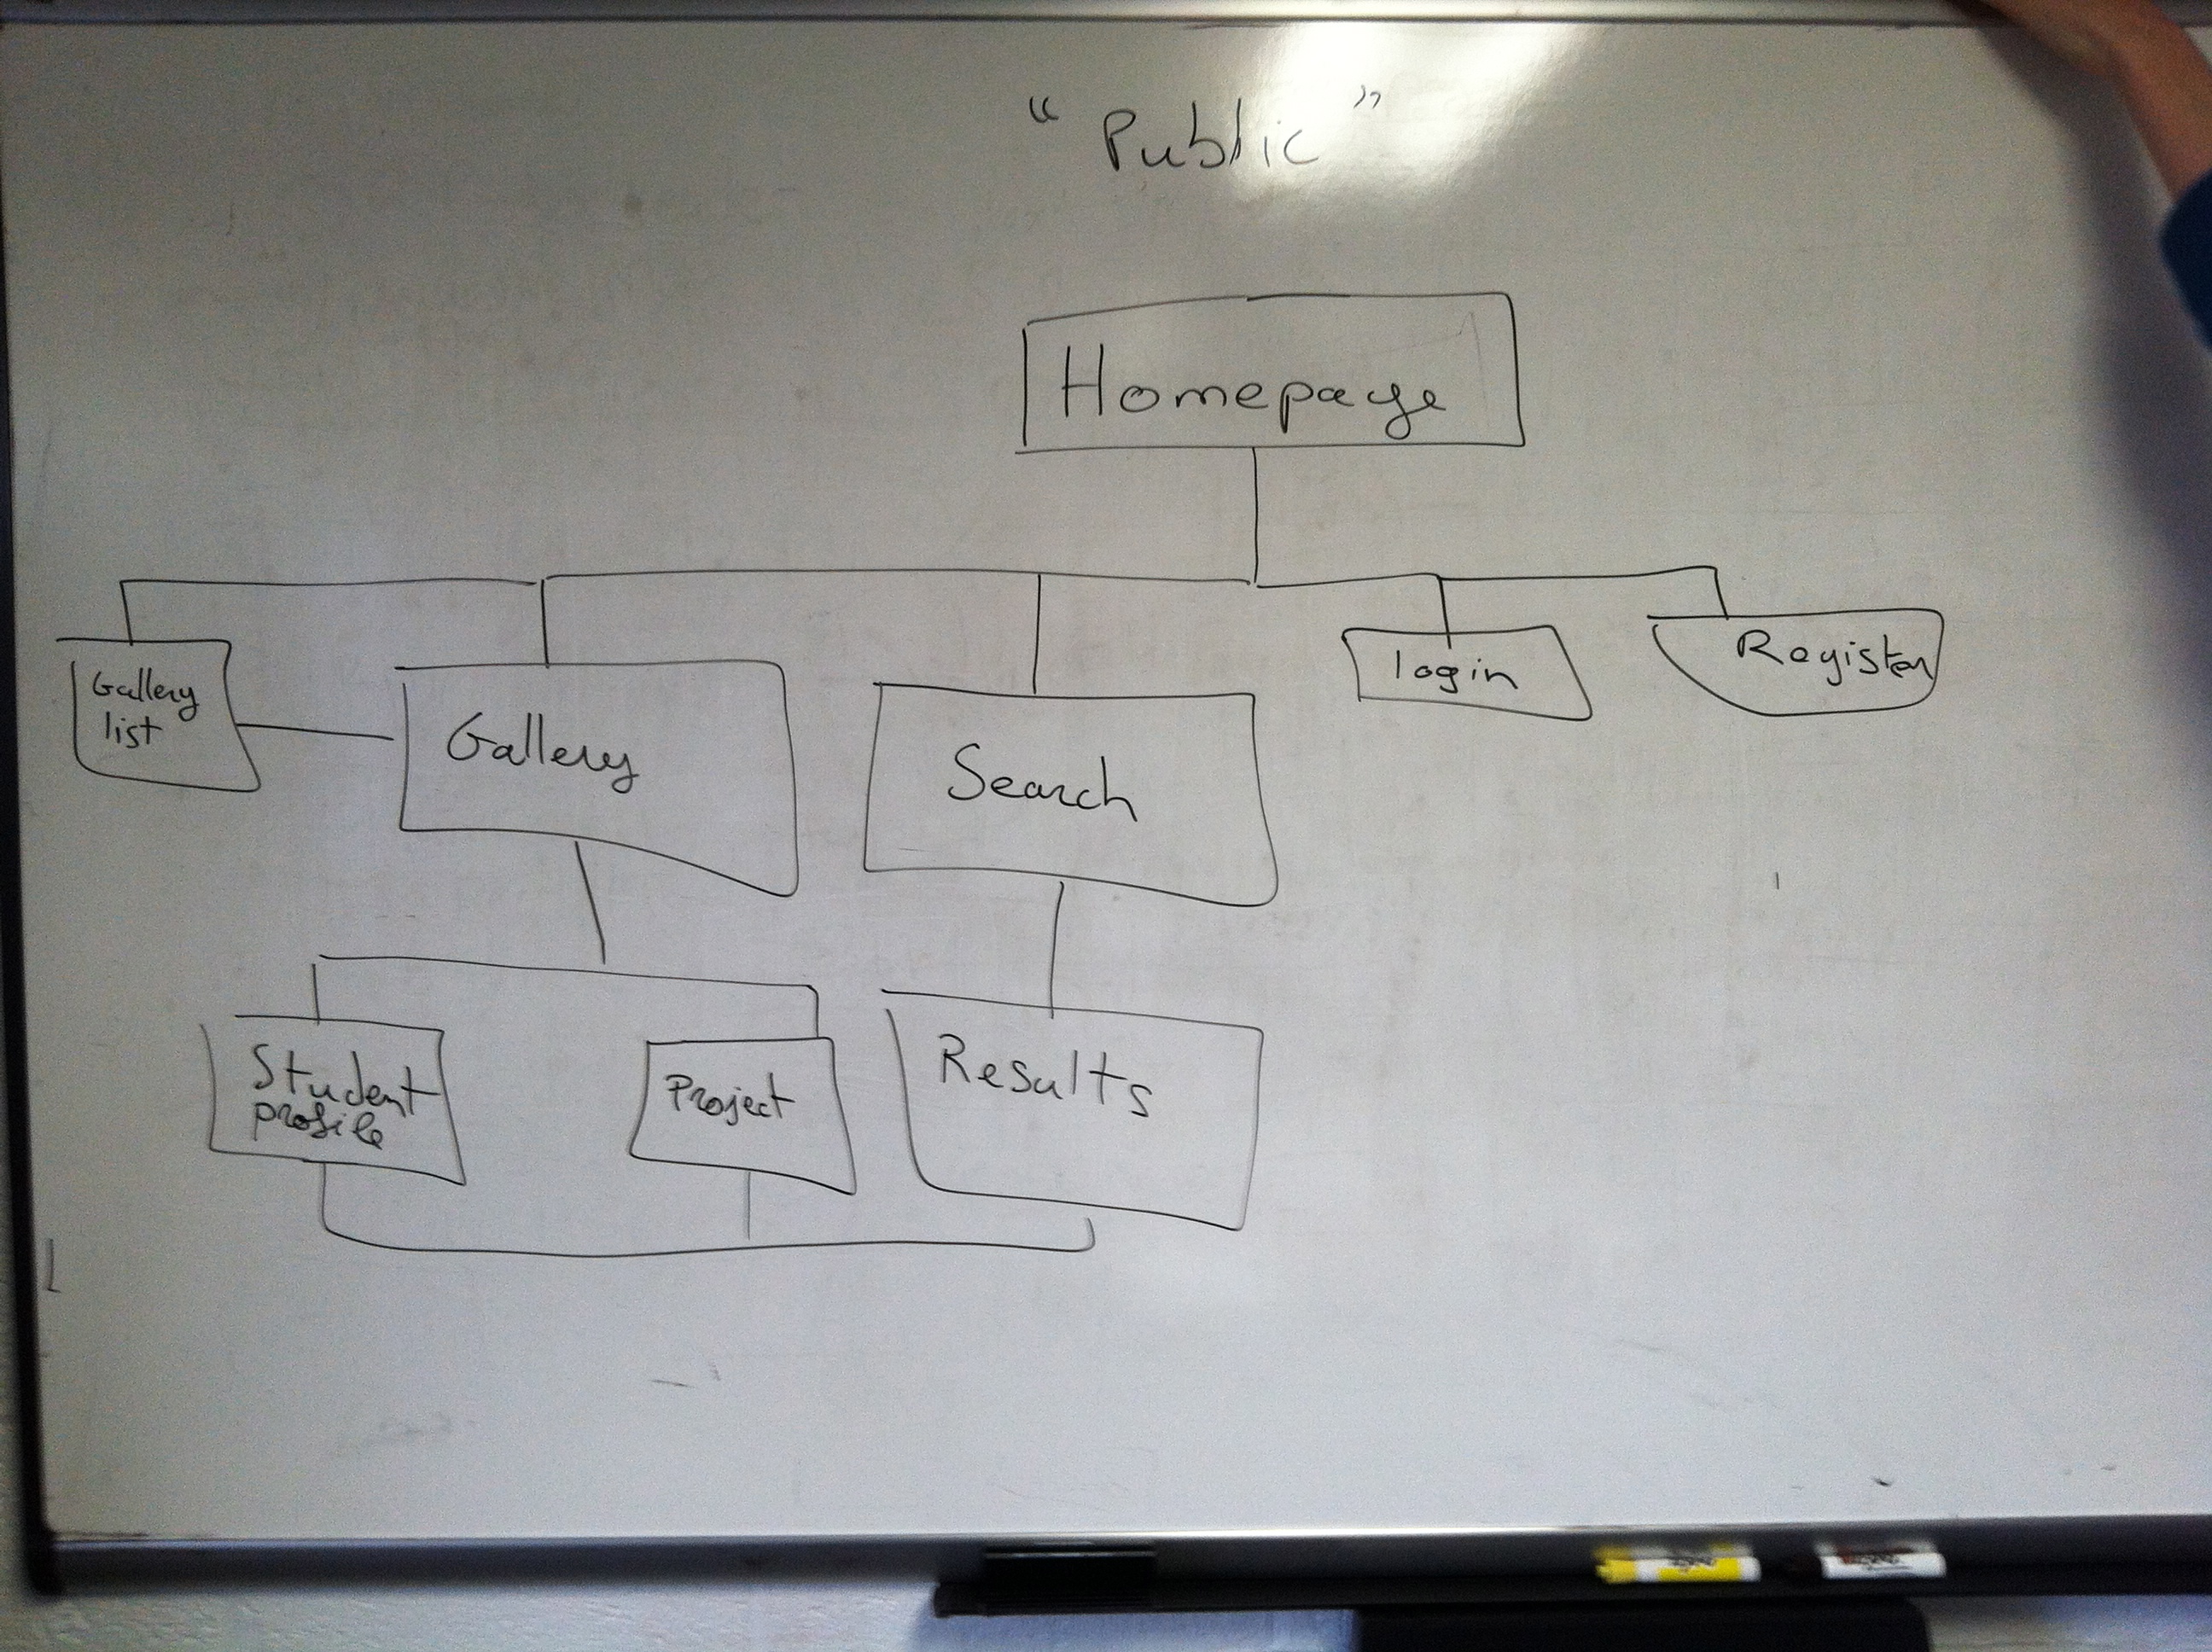 “Public”
Homepage
Gallery
list
Gallery
Search
login
Register
Student
profile
Project
Results